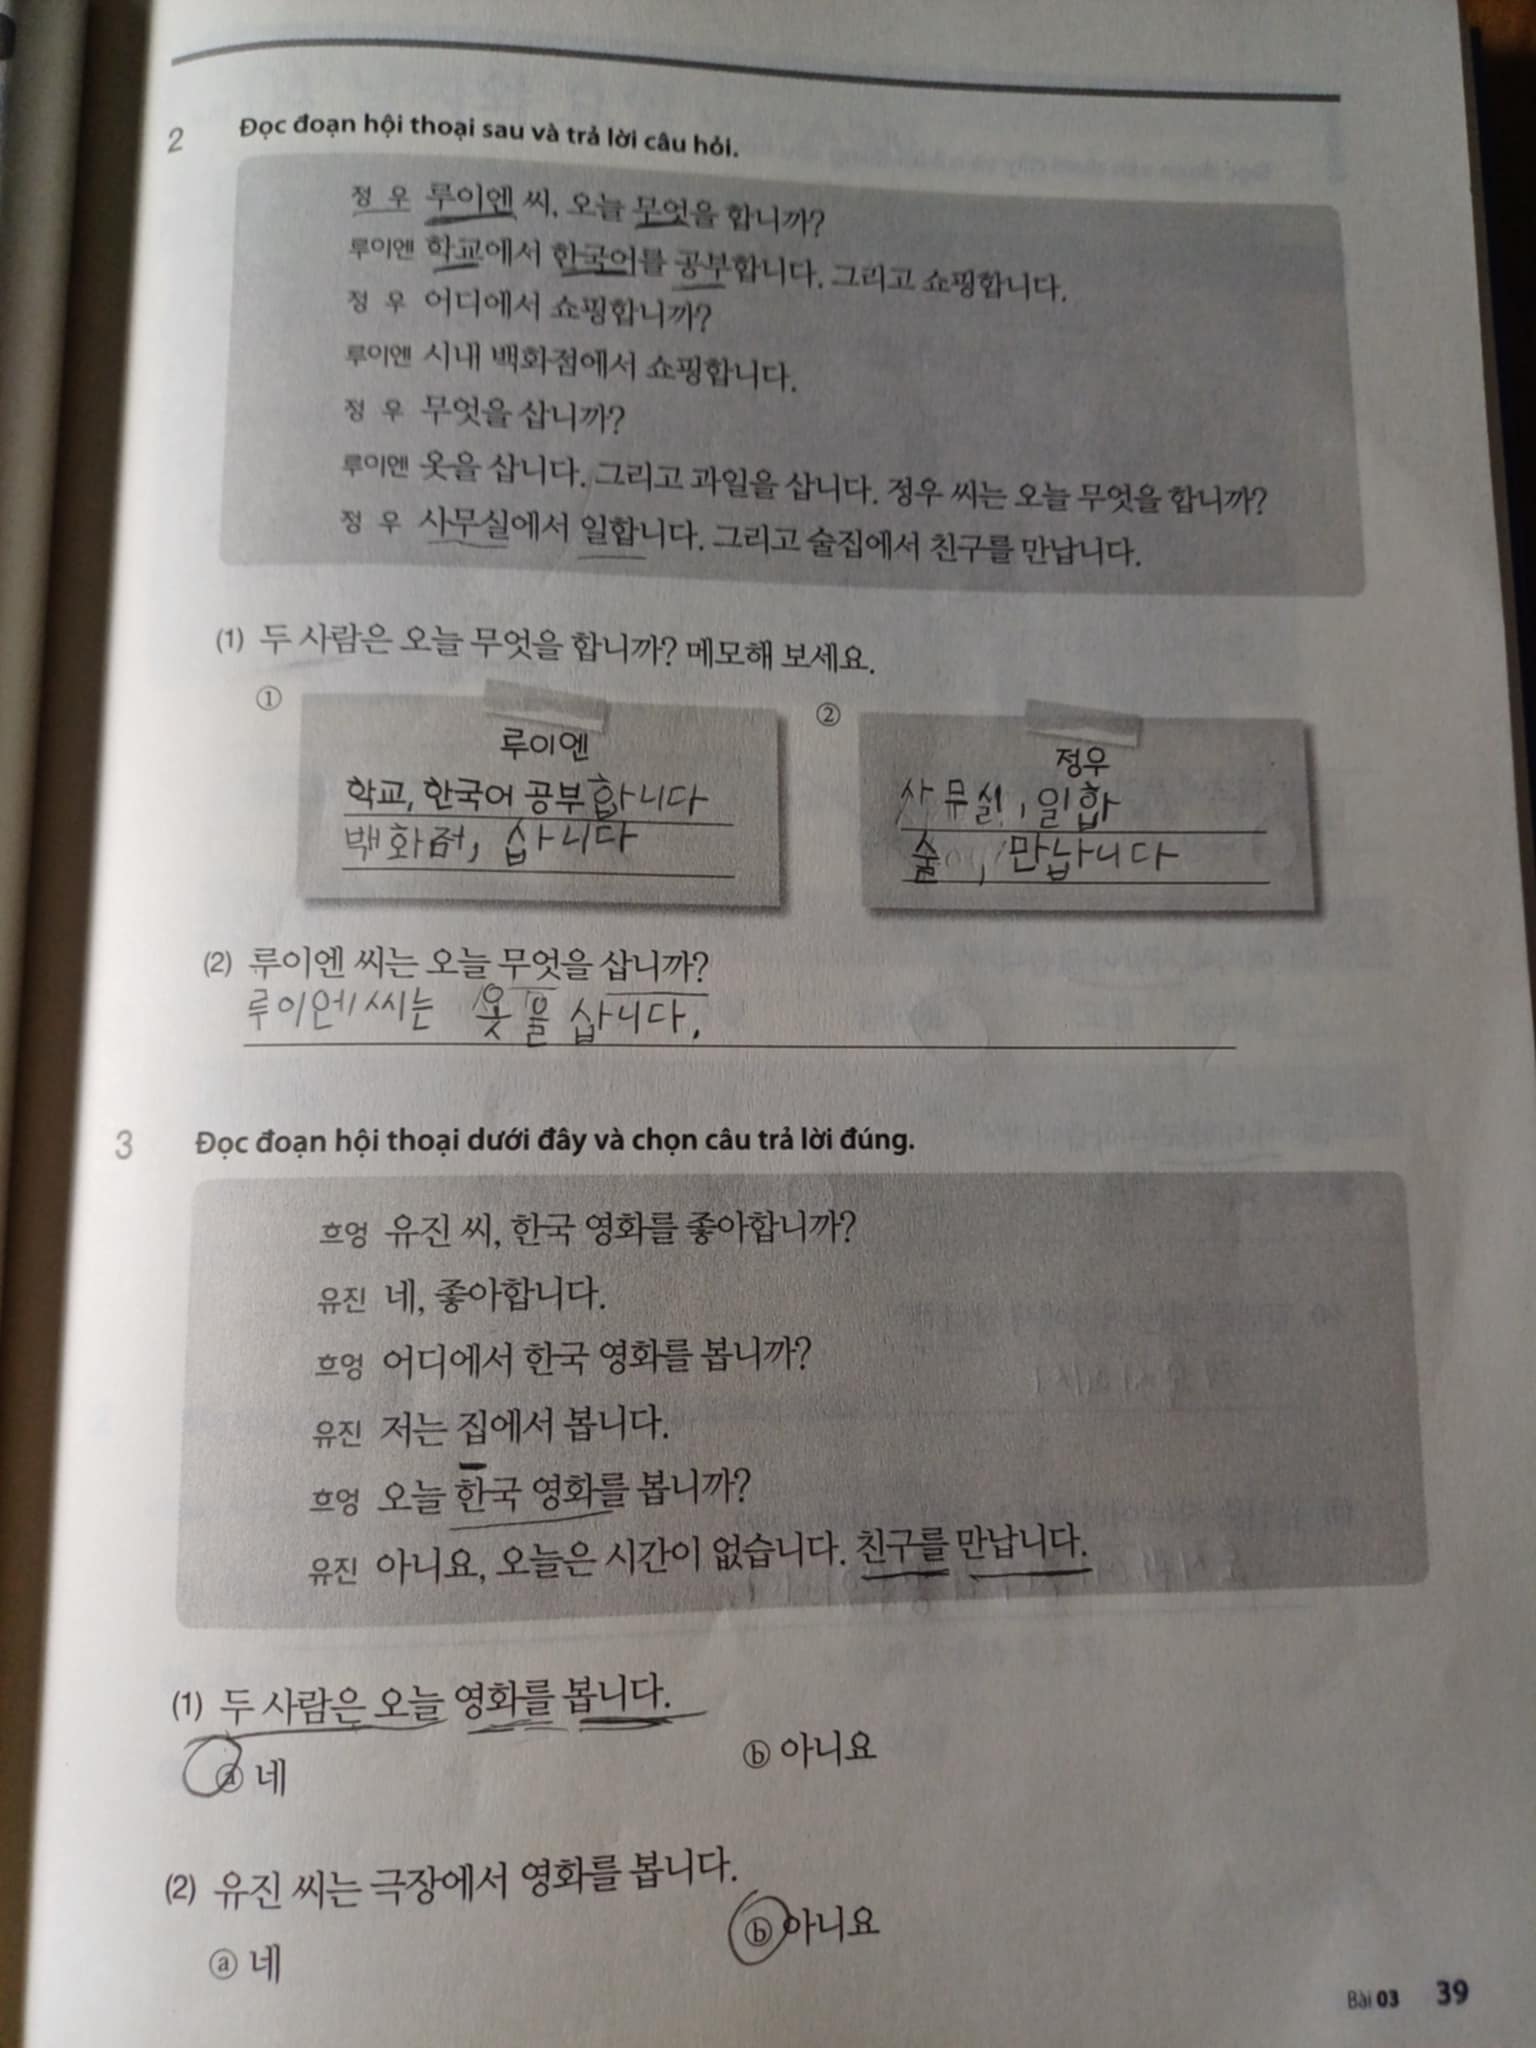 2 Đọc đoạn hội thoại sau và trả lời câu hỏi.
정 우 루이엔 씨, 오늘 무엇을 합니까?
루이엔 학교에서 한국어를 공부합니다. 그리고 쇼핑합니다.
정 우 어디에서 쇼핑합니까?
루이엔 시내 백화점에서 쇼핑합니다.
정 우 무엇을 삽니까?
루이엔 옷을 삽니다. 그리고 과일을 삽니다. 정우 씨는 오늘 무엇을 합니까?
정 우 사무실에서 일합니다. 그리고 술집에서 친구를 만납니다.
(1) 두 사람은 오늘 무엇을 합니까? 메모해 보세요.
① ②
루이엔 정우
학교, 한국어 공부합니다 사무실, 일합
백화점, 삽니다 술 , 만납니다
(2) 류이엔 씨는 오늘 무엇을 삽니까?
루이에 씨는 옷을 삽니다.
3 Đọc đoạn hội thoại dưới đây và chọn câu trả lời đúng.
흐엉 유진 씨, 한국 영화를 좋아합니까?
유진 네, 좋아합니다.
흐엉 어디에서 한국 영화를 봅니까?
유진 저는 집에서 봅니다.
흐엉 오늘 한국 영화를 봅니까?
유진 아니요, 오늘은 시간이 없습니다. 친구를 만납니다.
(1) 두 사람은 오늘 영화를 봅니다.
ⓐ 네 ⓑ 아니요
(2) 유진 씨는 극장에서 영화를 봅니다.
ⓐ 네 ⓑ 아니요
Bài 03 39